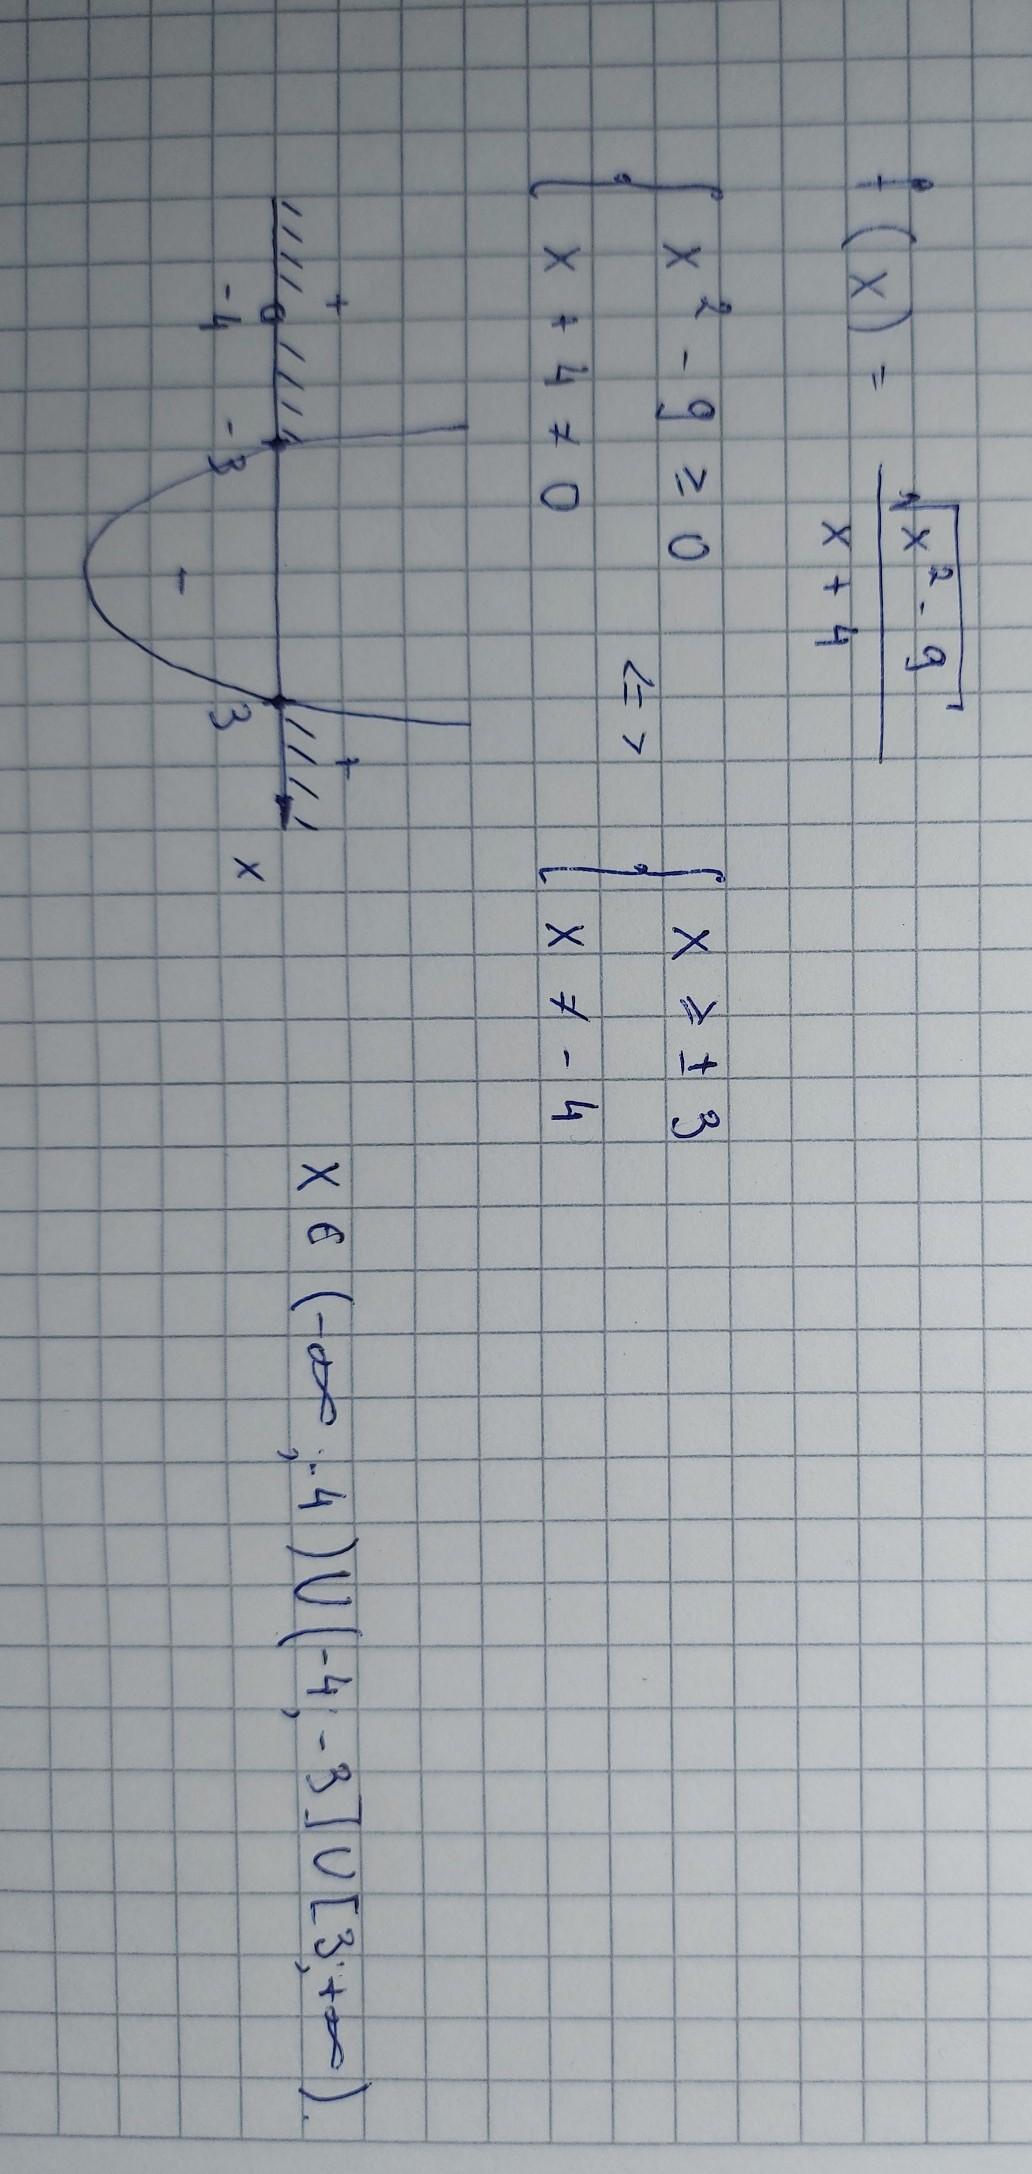 f(x) = √(x² - 9) / (x + 4)
{ x² - 9 ≥ 0 <=> { x ≥ ± 3
{ x + 4 ≠ 0 { x ≠ - 4
+ - +
-4 -3 3 x
x ∈ (-∞; -4) ∪ (-4; -3] ∪ [3; +∞).